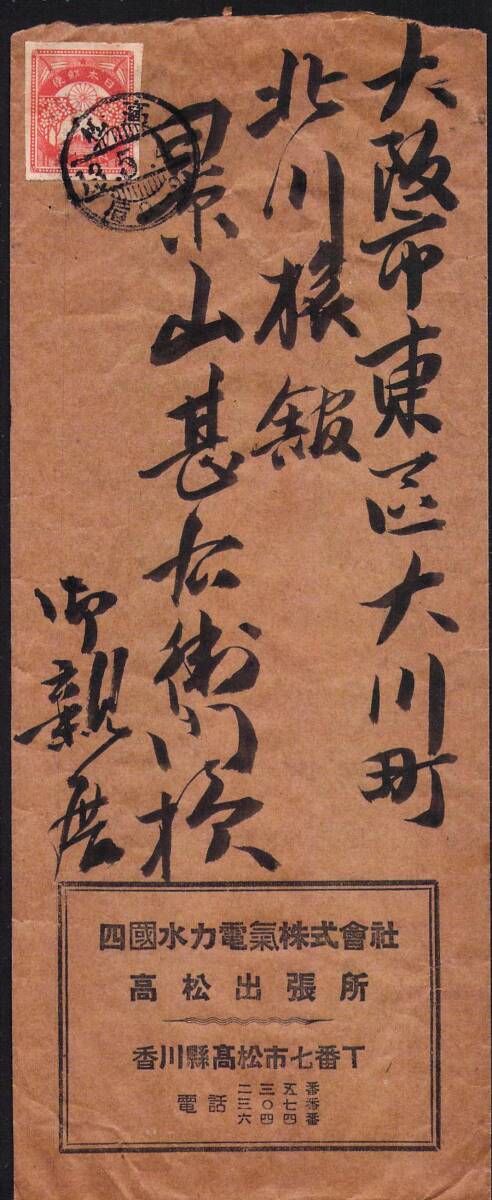 大阪市東区大川町
北川旅舘
景山甚右衛門様
御親展
日本郵便
四國水力電氣株式會社
高松出張所
香川縣高松市七番丁
電話
二三五番
三〇七番
六四四番